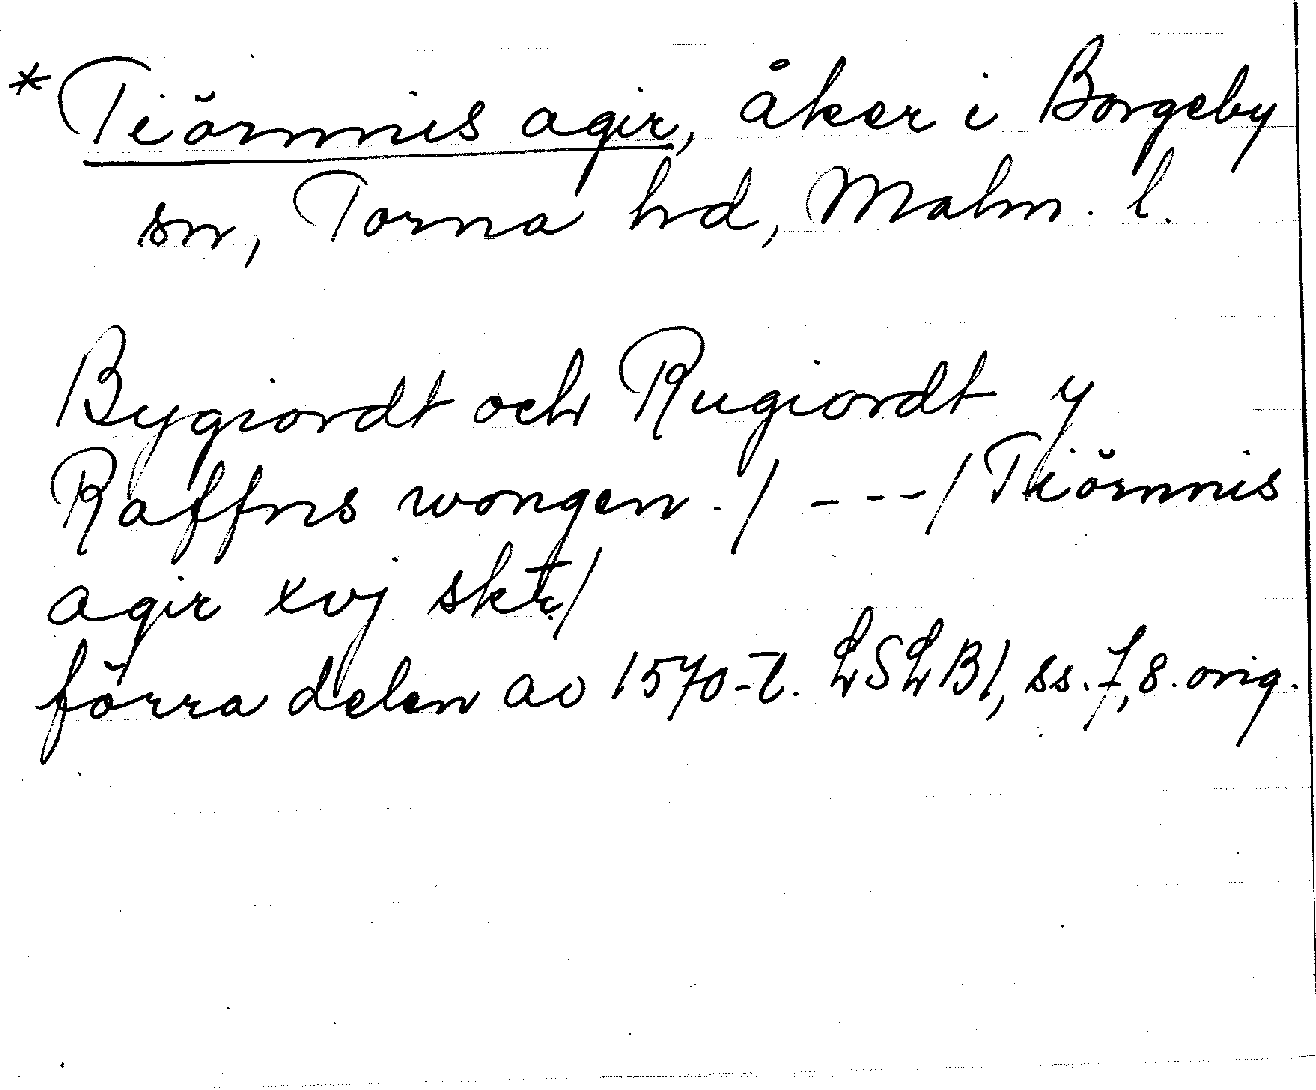 * Tiörnnis agir, åker i Borgeby
sn, Torna hd, Malm. l.
Bygiordt och Rugiordt y
Raffns wongen ./ - - - / Tiörnnis
agir xvj skr̄/
förra delen av 1570-t. LSLB1, ss. 7, 8. orig.